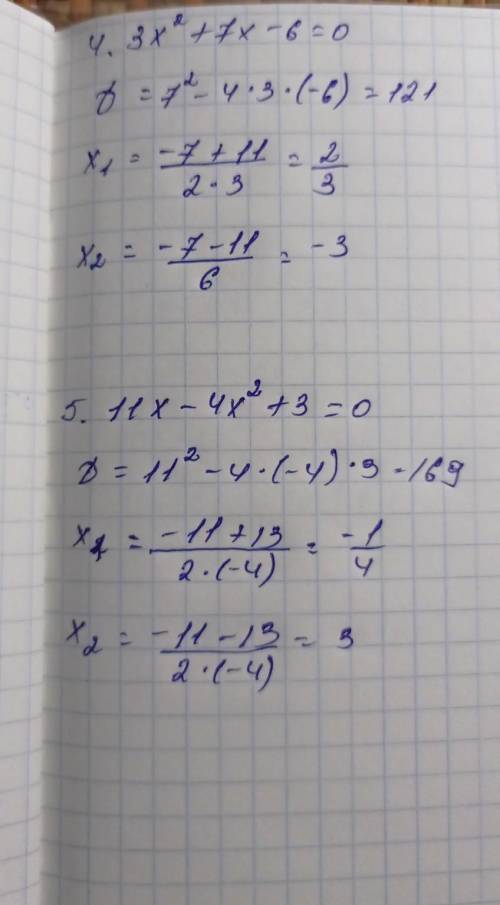 4. 3x² + 7x - 6 = 0
D = 7² - 4 · 3 · (-6) = 121
x₁ = (-7 + 11)/(2 · 3) = 2/3
x₂ = (-7 - 11)/6 = -3
5. 11x - 4x² + 3 = 0
D = 11² - 4 · (-4) · 3 - 169
x₁ = (-11 + 13)/(2 · (-4)) = -1/4
x₂ = (-11 - 13)/(2 · (-4)) = 3